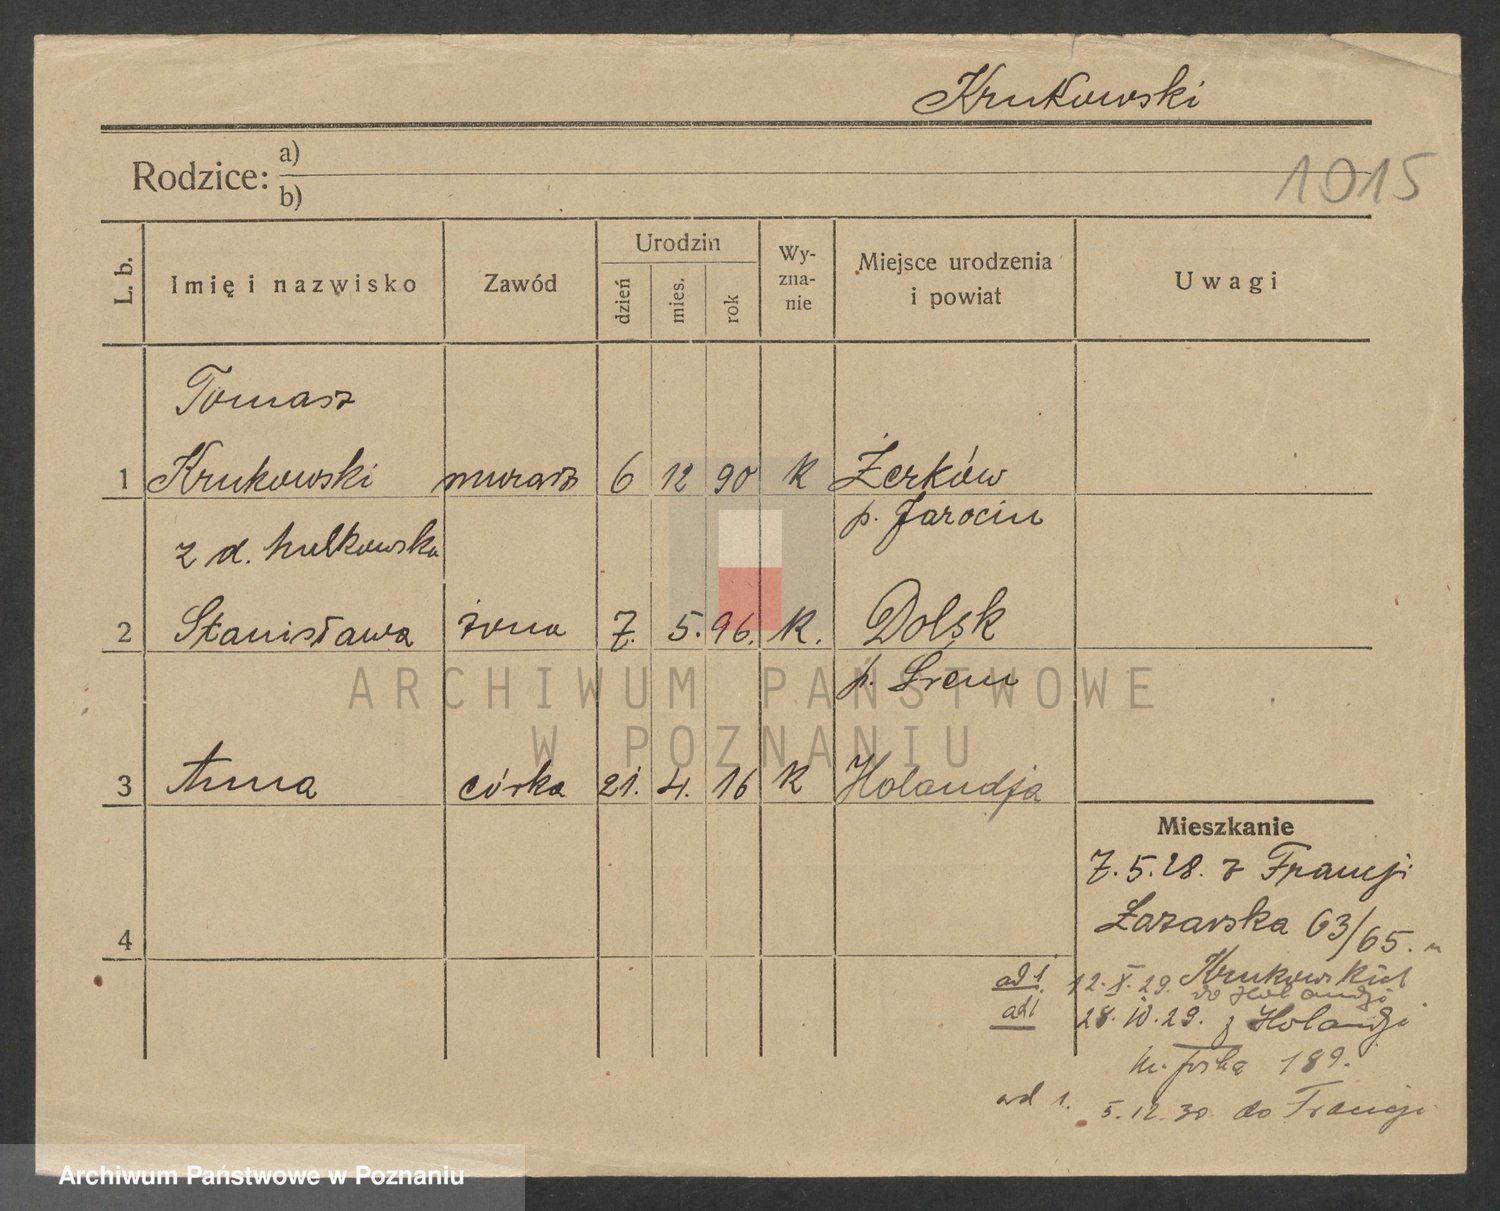 Krukowski
Rodzice: a)
b)
1015
L. b.
Imię i nazwisko
Zawód
Urodzin
dzień
mies.
rok
Wy-
zna-
nie
Miejsce urodzenia
i powiat
Uwagi
Tomasz
1 Krukowski murarz 6 12 90 K Żerków
p. Jarocin
z d. Mulkowska
2 Stanisława żona 7. 5. 96. K. Dolsk
p. Śrem
3 Anna córka 21. 4. 16 K Holandja
Mieszkanie
7.5.28. z Francji
Łazarska 63/65.
4
ad 1. 12.X.29.
do Holandji
ad 1 28.IV.29. z Holandji
189.
ad 1. 5.12.30 do Francji
ARCHIWUM PAŃSTWOWE
W POZNANIU
Archiwum Państwowe w Poznaniu